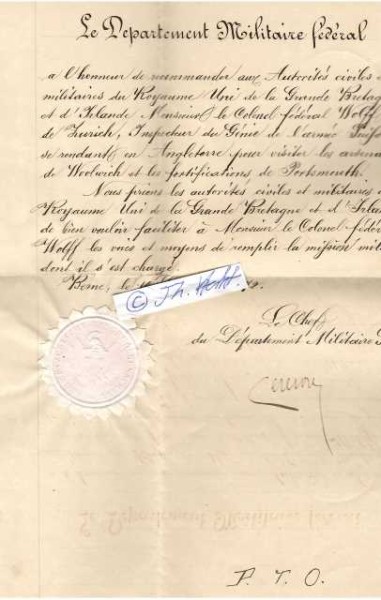 Le Département Militaire fédéral
a l'honneur de recommander aux Autorités civiles
militaires du Royaume Uni de la Grande Bretagn
et d'Irlande Monsieur le Colonel fédéral Wolff
de Zurich, Inspecteur du Génie de l'armée Suiss
se rendant en Angleterre pour visiter les arsenau
de Woolwich et les fortifications de Portsmouth.
Nous prions les autorités civiles et militaires
Royaume Uni de la Grande Bretagne et d'Irlan
de bien vouloir faciliter à Monsieur le Colonel fédér
Wolff les voies et moyens de remplir la mission mili
dont il s'est chargé.
Berne, le
© J.h. Hohl.
Le Chef
du Département Militaire
P. T. O.